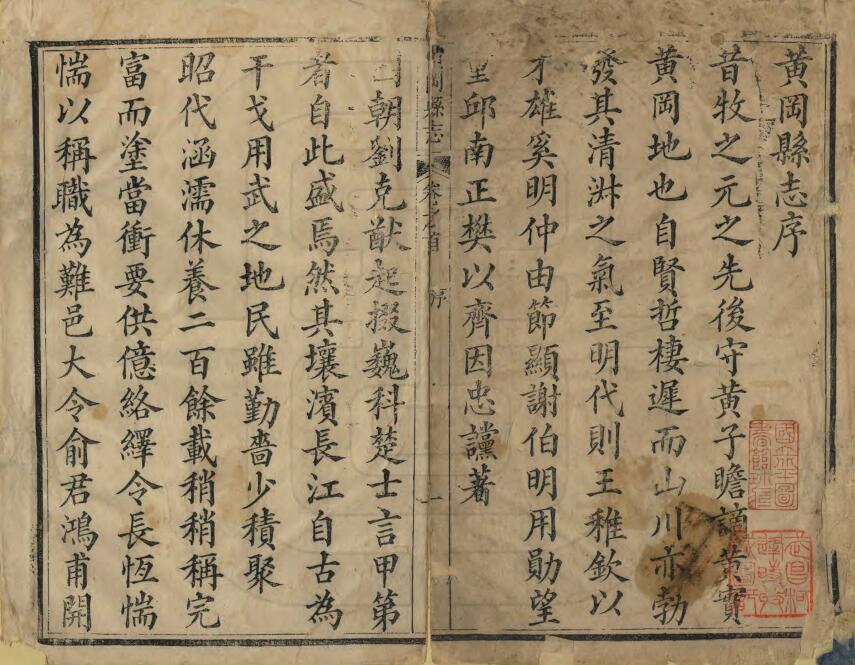 黃岡縣志序
昔牧之元之先後守黃子瞻謫黃實
黃岡地也自賢哲棲遲而山川亦勃
發其清淑之氣至明代則王稚欽以
才雄奚明仲由節顯謝伯明用勛望
邱南正樊以齊因忠讜著
岡縣志
卷之首
序
一
朝劉克猷起掇巍科楚士言甲第
者自此盛焉然其壤濱長江自古為
干戈用武之地民雖勤嗇少積聚
昭代涵濡休養二百餘載稍稍稱完
富而塗當衝要供億絡繹令長恆惴
惴以稱職為難邑大令俞君鴻甫開